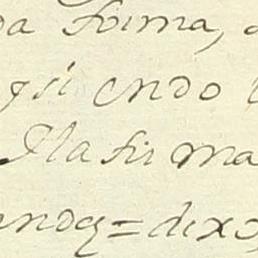 da forma, a
y siendo
Ila firma
endoq = dixo,